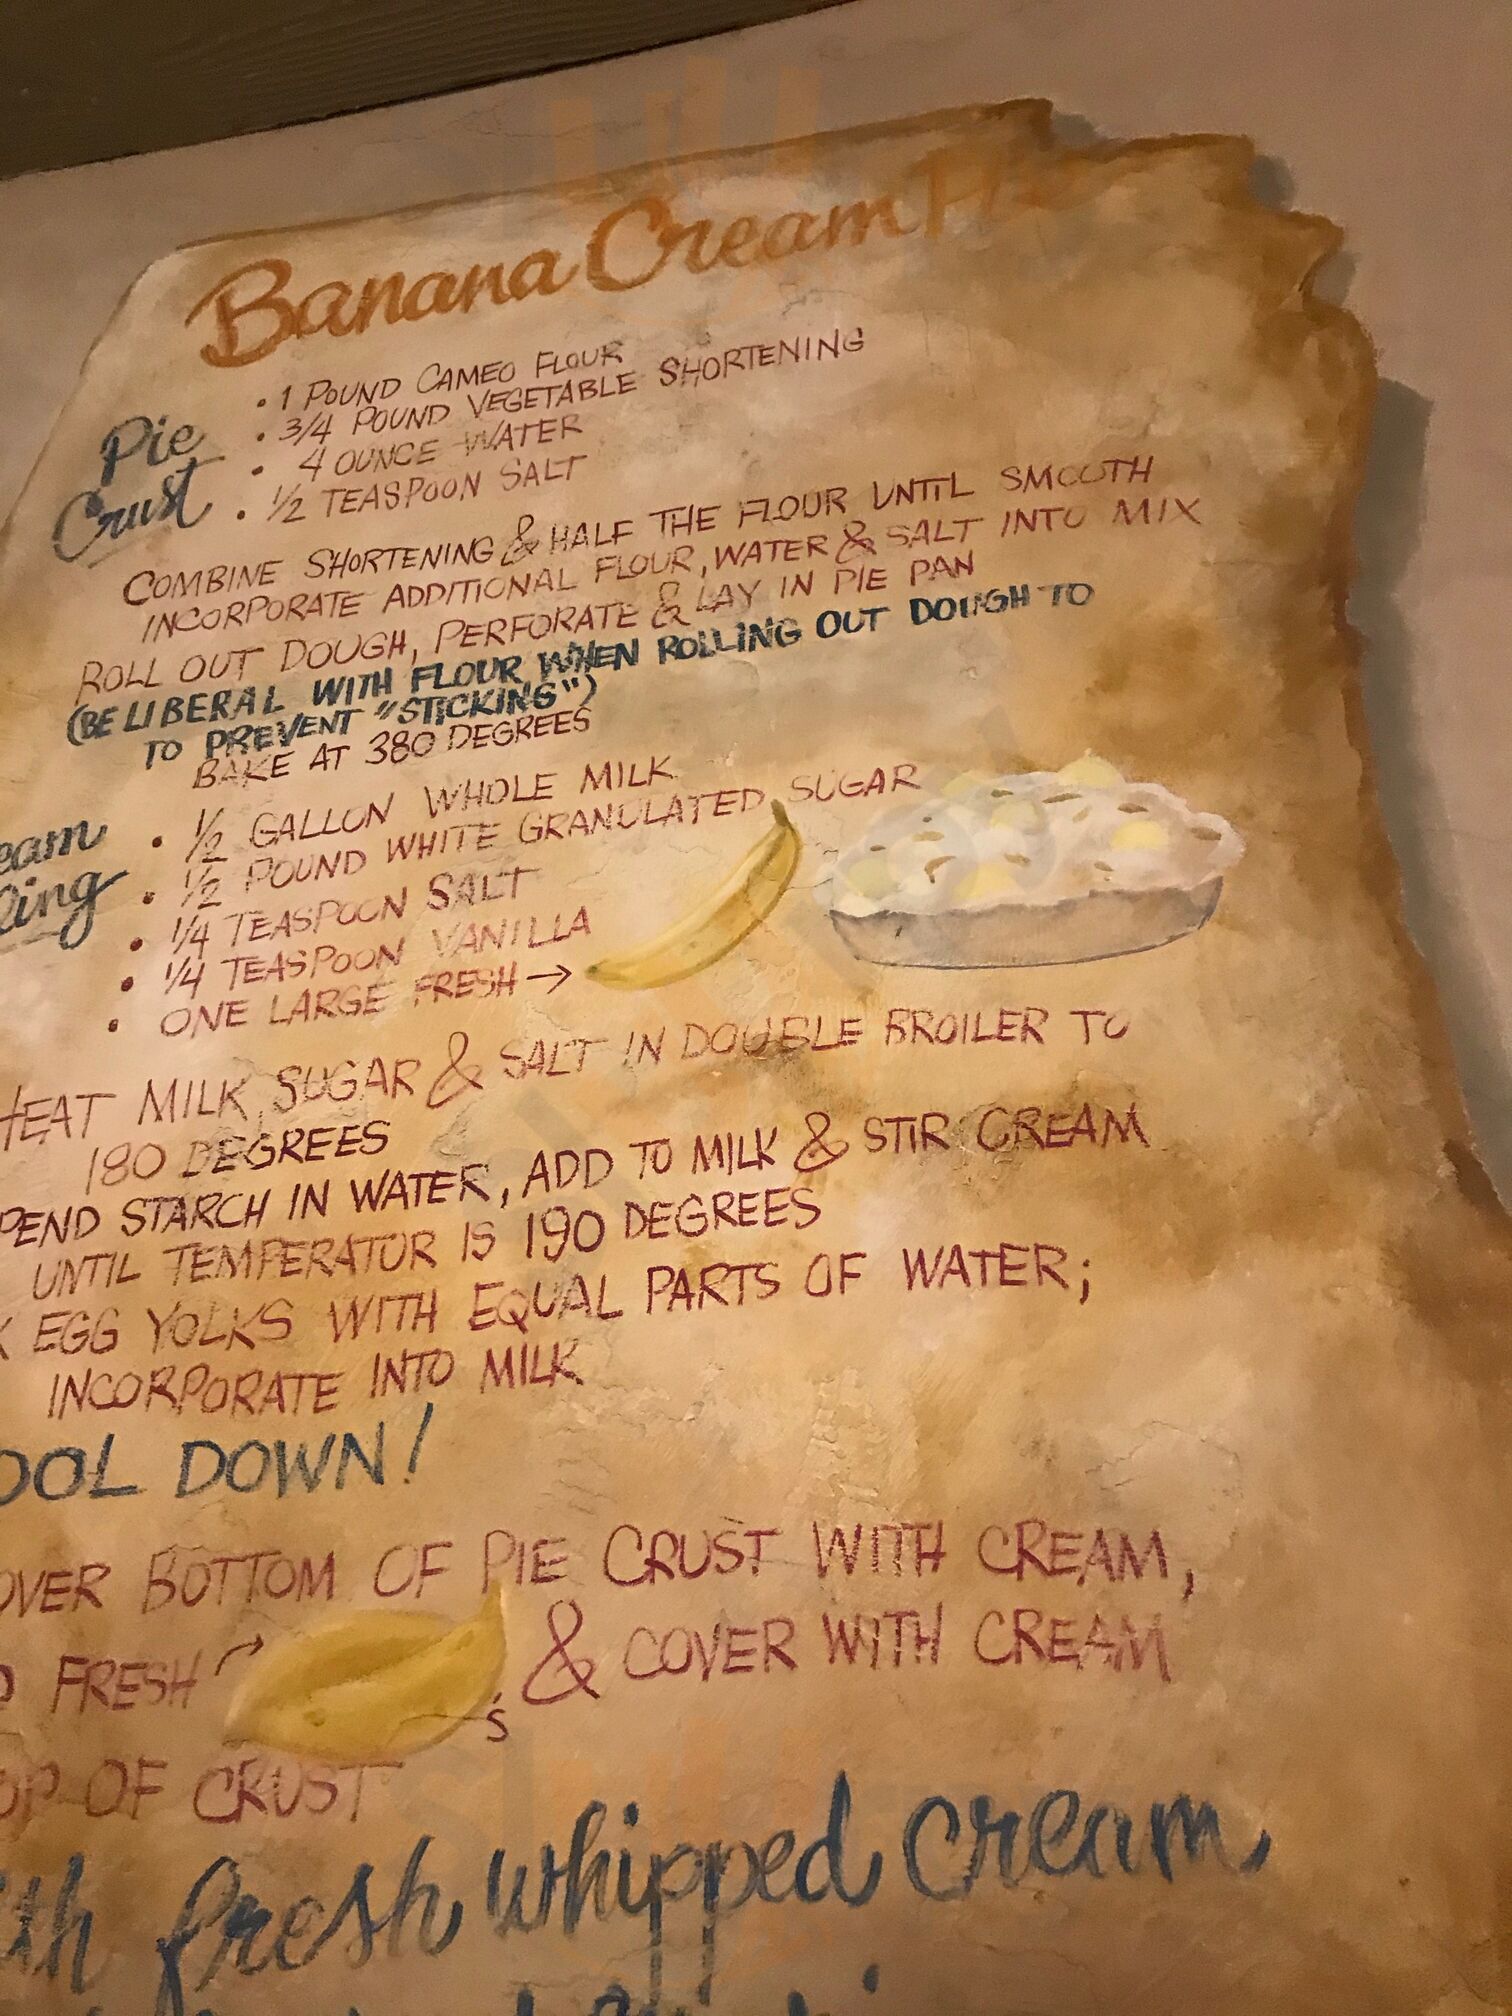 Banana Cream Pie
Pie
Crust
• 1 POUND CAMEO FLOUR
• 3/4 POUND VEGETABLE SHORTENING
• 4 OUNCE WATER
• 1/2 TEASPOON SALT
COMBINE SHORTENING & HALF THE FLOUR UNTIL SMOOTH
INCORPORATE ADDITIONAL FLOUR, WATER & SALT INTO MIX
ROLL OUT DOUGH, PERFORATE & LAY IN PIE PAN
(BE LIBERAL WITH FLOUR WHEN ROLLING OUT DOUGH TO
TO PREVENT "STICKING")
BAKE AT 380 DEGREES
eam
ling
• 1/2 GALLON WHOLE MILK
• 1/2 POUND WHITE GRANULATED SUGAR
• 1/4 TEASPOON SALT
• 1/4 TEASPOON VANILLA
• ONE LARGE FRESH →
HEAT MILK, SUGAR & SALT IN DOUBLE BROILER TO
180 DEGREES
PEND STARCH IN WATER, ADD TO MILK & STIR CREAM
UNTIL TEMPERATUR IS 190 DEGREES
X EGG YOLKS WITH EQUAL PARTS OF WATER;
INCORPORATE INTO MILK
OOL DOWN!
OVER BOTTOM OF PIE CRUST WITH CREAM,
D FRESH → 's & COVER WITH CREAM
OP OF CRUST
ith fresh whipped cream